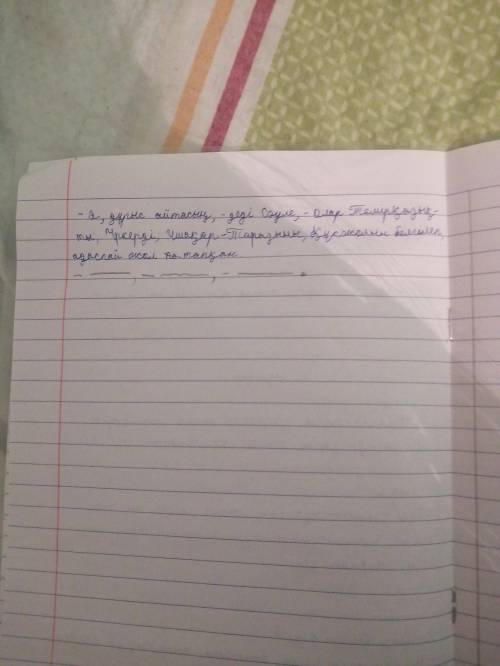 - Ә, дұрыс айтасың, - деді Сәуле, - олар Темірқазық-
ты, Үркерді, Үшарқар-Таразыны, Құсжолын бағылап,
адаспай жол тапқан
- ———, - ———, - ——— .